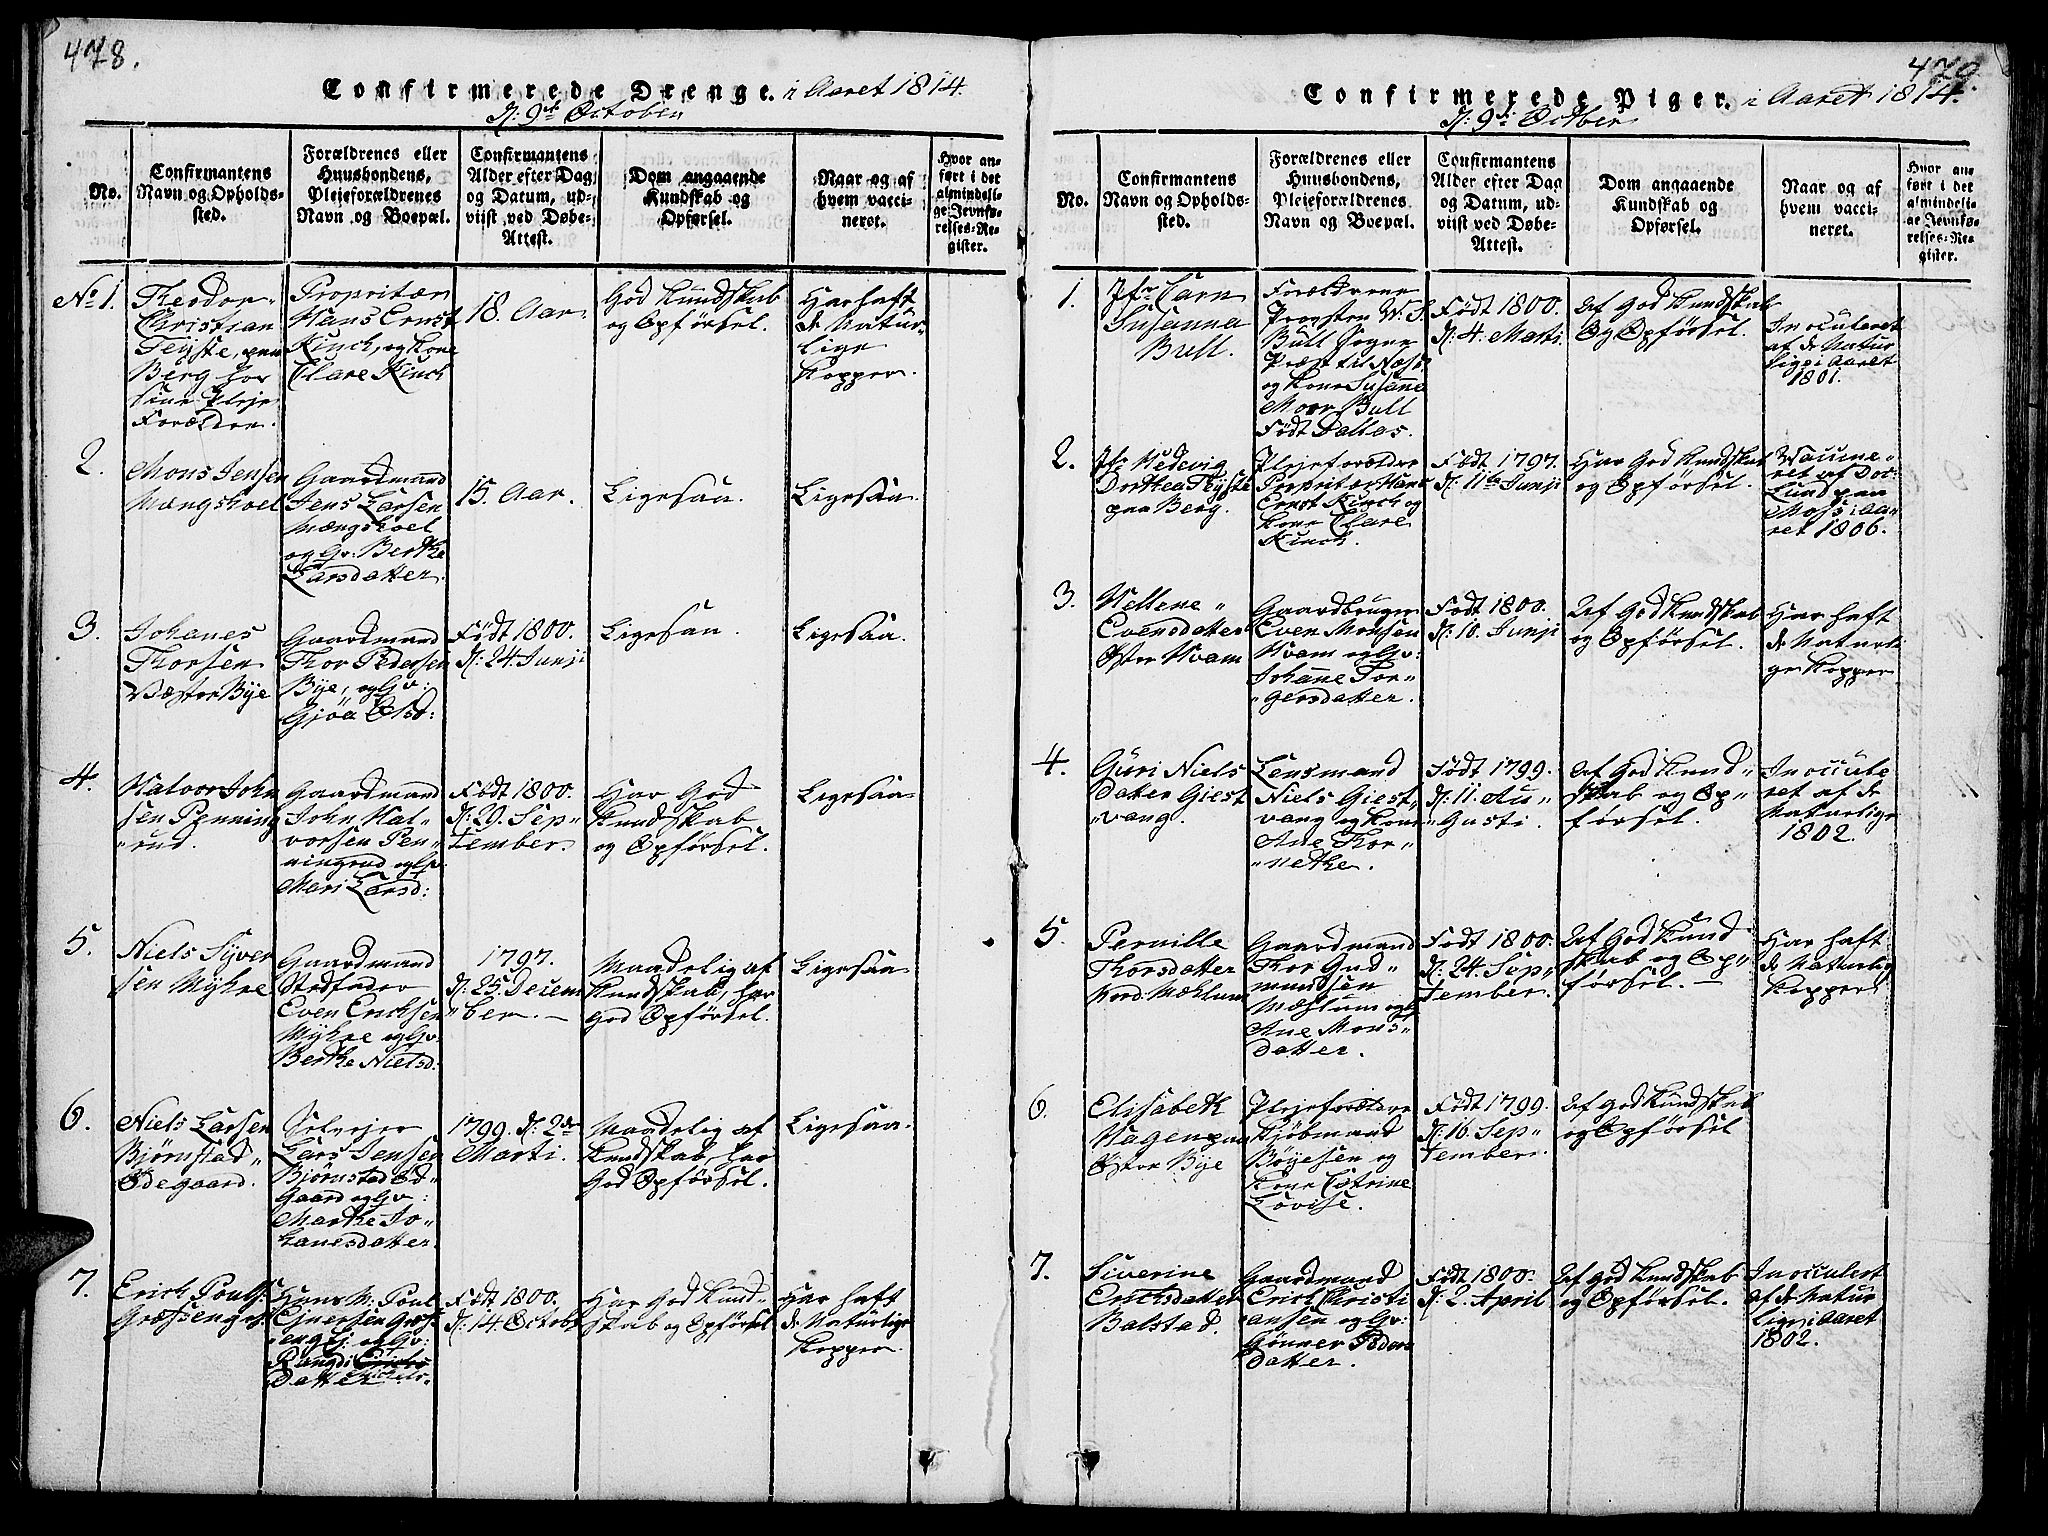 478.
Confirmerede Drenge. i Aaret 1814.
d: 9de October
No.
Confirmantens
Navn og Opholds-
sted.
Forældrenes eller
Huusbondens,
Plejeforældrenes
Navn og Boepæl.
Confirmantens
Alder efter Dag
og Datum, ud-
viist ved Døbe-
Attest.
Dom angaaende
Kundskab og
Opførsel.
Naar og af
hvem vacci-
neret.
Hvor an-
ført i det
almindeli-
ge Jevnfø-
relses-Re-
gister.
No 1.
Theodor
Christian
Teÿste, paa
Berg hos
sine Pleje
Forældre.
Propritær
Hans Ernst
Kinck, og kone
Clare Kinck
18. Aar.
God Kundskab
og Opførsel.
Har haft
de Natur-
lige
Kopper.
2.
Mons Jensen
Mængskoel
Gaardmand
Jens Larsen
Mængskoel
og Gv: Berthe
Larsdatter.
15. Aar.
Ligesaa.
Ligesaa.
3.
Johanes
Thorsen
Væster Bÿe
Gaardmand
Thor Pedersen
Bÿe, og Gv:
Gjöa Olsd:
Født 1800.
d: 24 Junji
Ligesaa.
Ligesaa.
4.
Halvor John
sen Penning
"rud.
Gaardmand
John Hal-
vorsen Pen-
ningrud og Gv.
Mari Larsd:
Født 1800.
d: 29. Sep-
tember.
Har God
Kundskab
og Opførsel.
Ligesaa.
5.
Niels Sÿver
sen Mÿhre
Gaardmand
Stedfader
Even Erichsen
Mÿhre og Gv.
Berthe Nielsd.
1797.
d: 25. Decem
"ber. —
Maadelig af
Kundskab, har
god Opførsel.
Ligesaa.
6.
Niels Larsen
Bjørnstad"
Ødegaard.
Selvejer
Lars Jensen
Bjørnstad Ød-
Gaard og Gv:
Marthe Jo-
hanesdatter.
1799. d: 2de
Marti.
Maadelig af
Kundskab, har
God Opførsel.
Ligesaa.
7.
Erich Pouls.
Græssenget
Huus M: Poul
Ejnersen Græs
Datter
Født 1800.
d: 14. Octobr
Har God Kund-
skab og Opførsel
Har haft
de Naturlige
Kopper.
479.
Confirmerede Piger. i Aaret 1814.
d: 9de Octber
No.
Confirmantens
Navn og Opholds-
sted.
Forældrenes eller
Huusbondens,
Plejeforældrenes
Navn og Boepæl.
Confirmantens
Alder efter Dag
og Datum, ud-
viist ved Døbe-
Attest.
Dom angaaende
Kundskab og
Opførsel.
Naar og af
hvem vacci-
neret.
Hvor an-
ført i det
almindeli-
ge Jevnfø-
relses-Re-
gister.
1.
Jfr Carn
Susanna
Bull.
Forældrene
Provsten W. S.
Bull Sogne
Præst til Næs
og kone Susanne
Moor Bull
Født Dallas.
Født 1800.
d: 4. Marti.
Af God Kundskab
Og Opførsel.
Inoculeret
af de Natur
lige i Aaret
1801.
2.
Jfr Hedevig
Dorthea Teÿste
paa Berg.
Plejeforældre
Propritær Hans
Ernst Kinck og
kone Clare
Kinck.
Født 1797.
d: 11te Junji
Har God Kundskab
og Opførsel.
Vaccine-
ret af Doc:
Lund paa
Moss i Aa-
ret 1806.
3.
Hellene "
Evensdatter
Øster Hvam
Gaardbruger
Even Monsen
Hvam og Gv:
Johanne Tor-
"gersdatter.
Født 1800.
d: 10. Junji
Af God Kundskab
og Opførsel.
Har haft
de Naturli
ge Kopper
4.
Guri Niels
datter Giest
"vang.
Lensmand
Niels Giest-
vang og kone
Ane Thor-
"nethe.
Født 1799.
d: 11. Au-
"Gusti.
Af God Kund-
skab og Op-
førsel.
Inoccule
ret af de
Naturlige
1802.
5.
Pernille
Thorsdatter
Nord: Mæhlum
Gaardmand
Thor Gud-
mundsen
Mæhlum og Gv
Ane Mons-
datter.
Født 1800.
d: 24. Sep-
tember.
Af God Kund
skab og Op-
førsel. —
Har haft
de Naturlig
Kopper
6.
Elisabeth
Hagen paa
Øster Bÿe
Plejeforældre
Kjøbmand
Bøÿesen og
Kone Catrine
Lovise.
Født 1799.
d: 16. Sep-
tember.
Af God Kundskab
og Opførsel
7.
Siverine
Erichsdatter
Balstad.
Gaardmand
Erich Christi
ansen og Gv:
Gönner Peders
datter.
Født 1800.
d: 2. April
Af God Kundskab
og Opførsel.
Inocculert
af de Natur
lige i Aaret
1802.